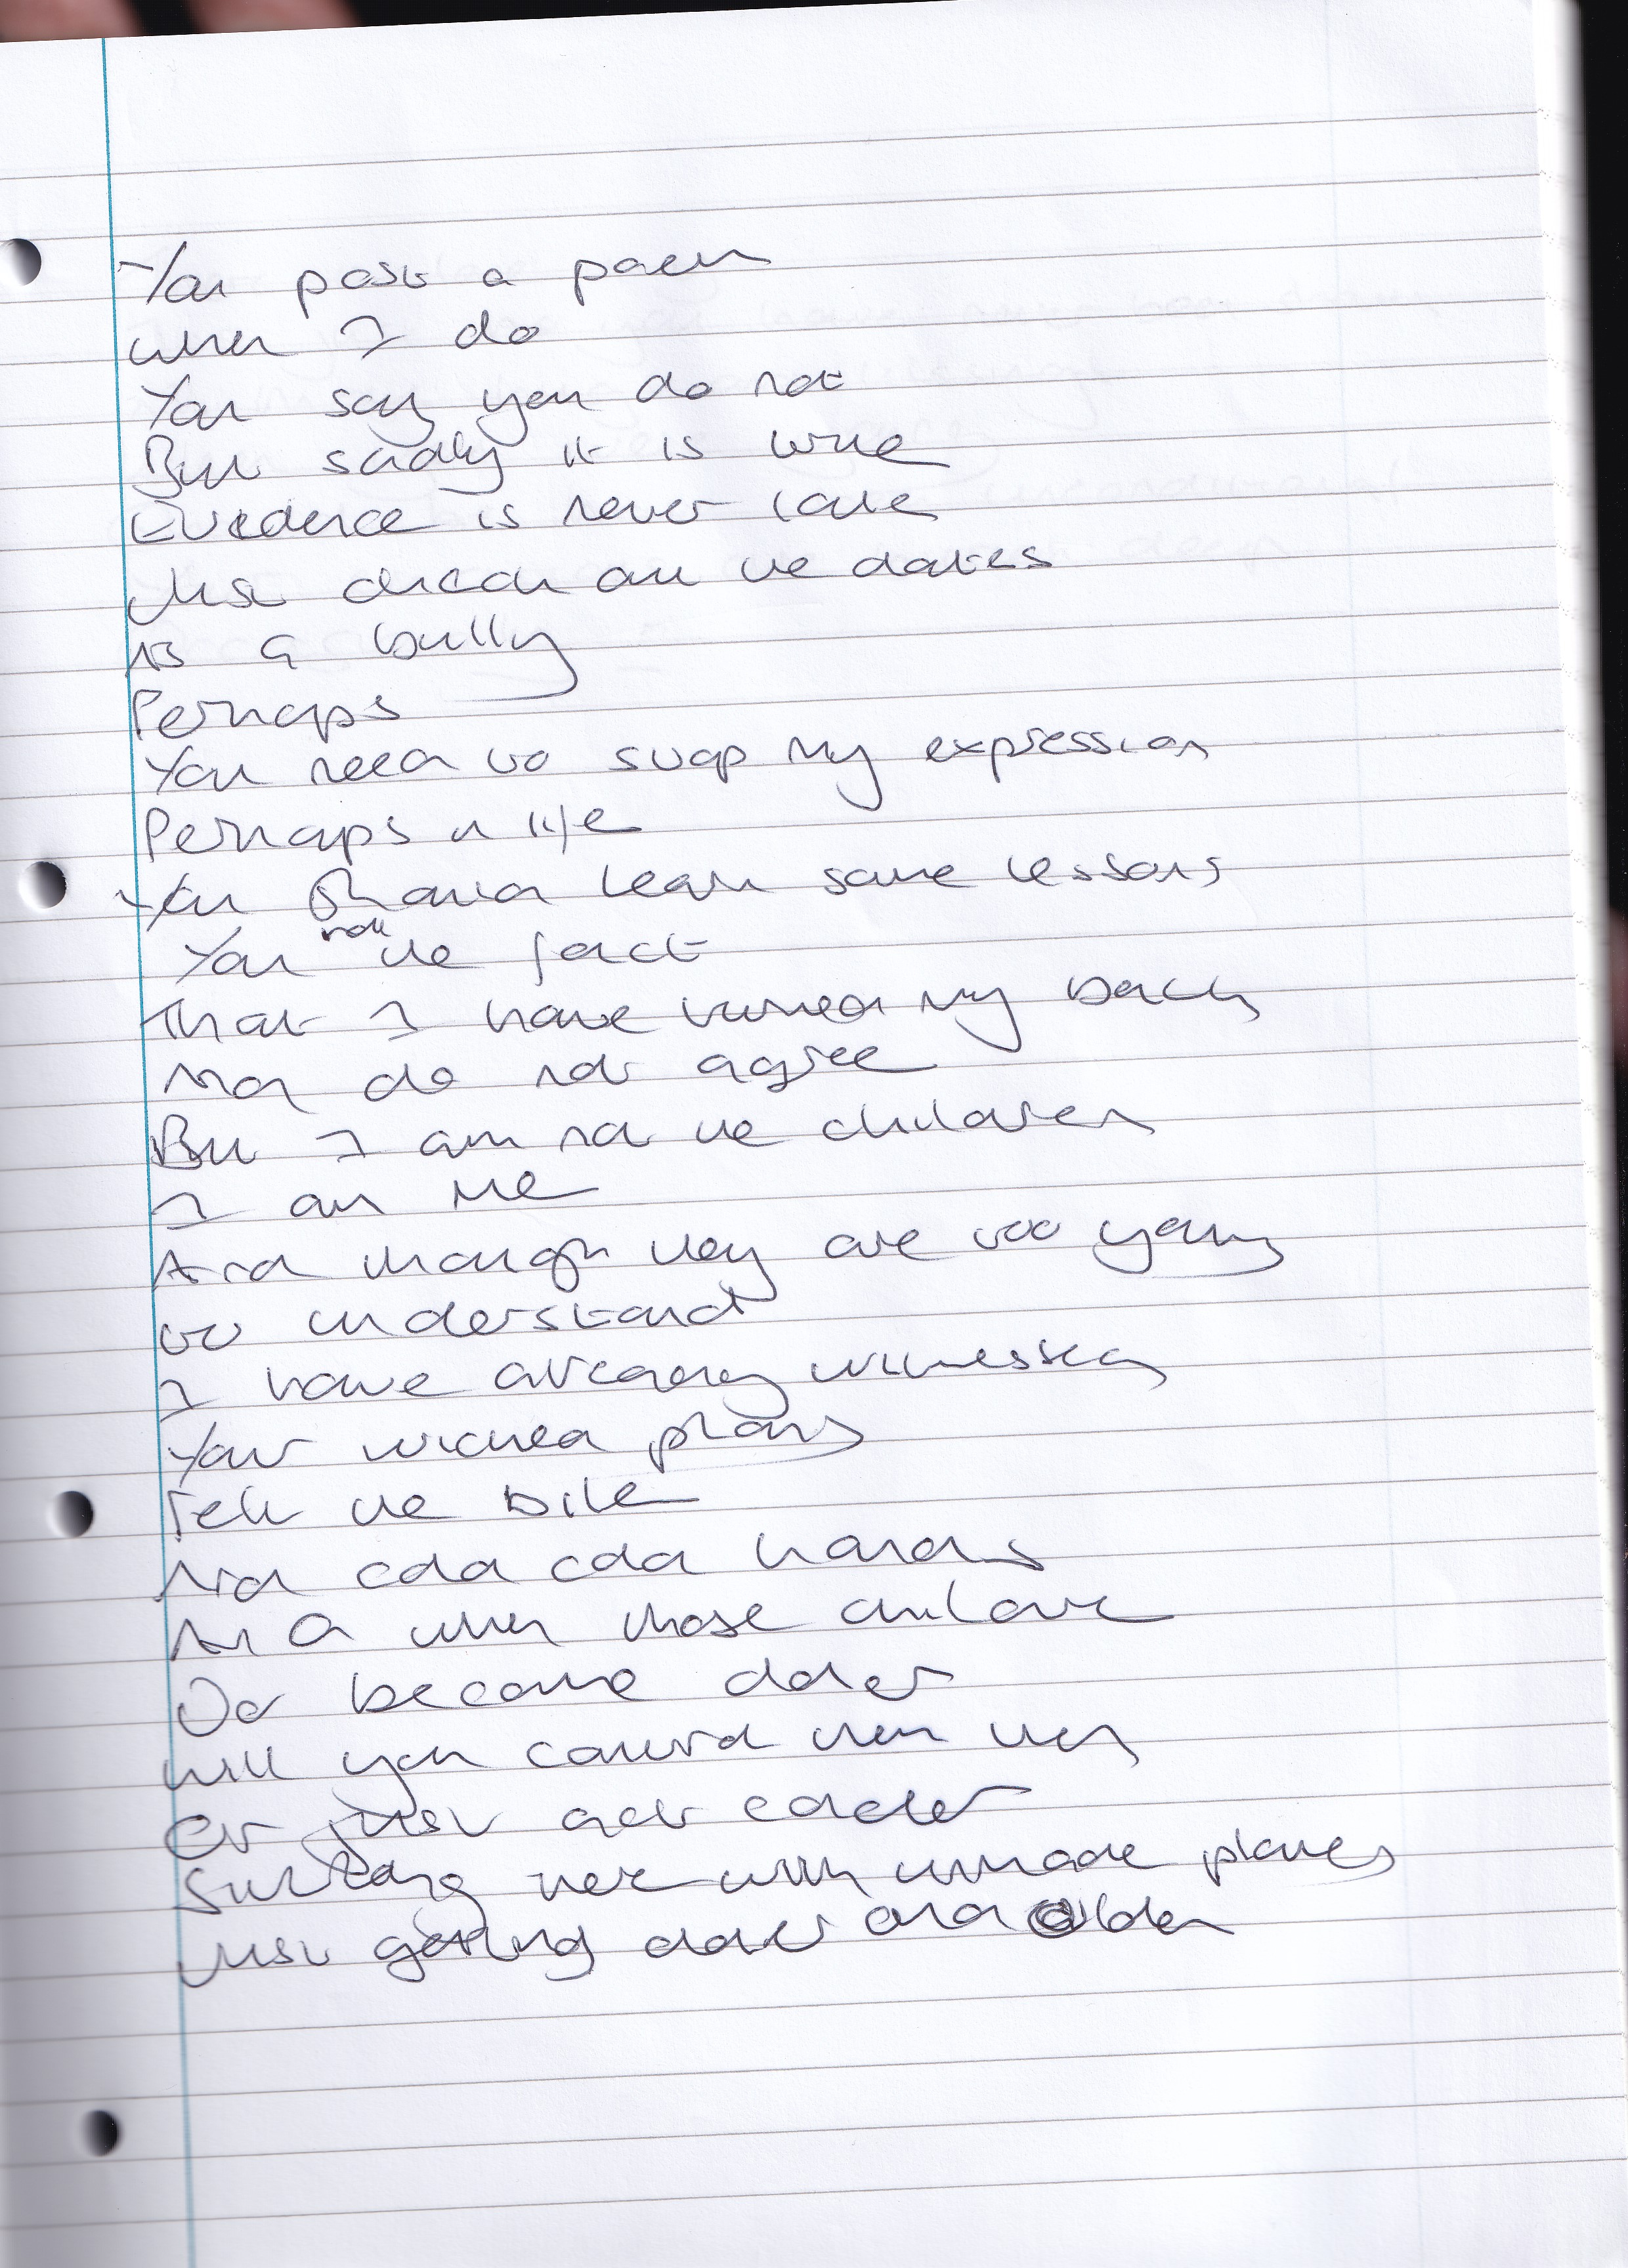 You post a poem
when I do
You say you do not
But sadly it is true
Evidence is never late
Just check all the dates
As a bully
Perhaps
You need to stop my expression
Perhaps in life
You should learn some lessons
You not the fact
That I have turned my back
And do not agree
But I am not the children
I am me
And though they are too young
to understand
I have already witnessed
Your wicked plans
Tell the bible
And cold cold hands
And when those children
Do become older
Will you control them then
Or just act colder
Sitting there with unmade plans
Just getting older and older